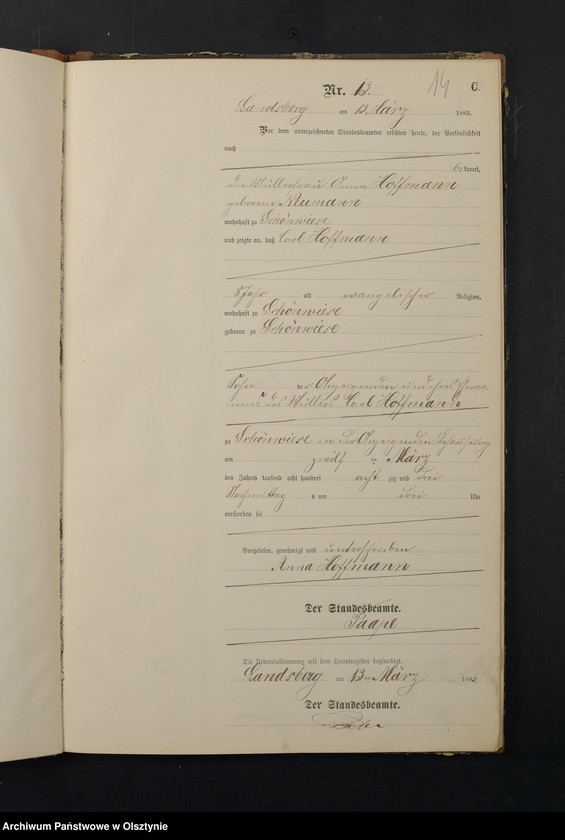 Nr. 13. 14 C.
Landsberg am 13 März 1883.
Vor dem unterzeichneten Standesbeamten erschien heute, der Persönlichkeit
nach
bekannt,
die Müllerfrau Anna Hoffmann
geborene Neumann
wohnhaft zu Schönwiese
und zeigte an, daß Carl Hoffmann
alt evangelischer Religion,
wohnhaft zu Schönwiese
geboren zu Schönwiese
Sohn der Anzeigenden und ihres Ehema
nnes des Müllers Carl Hoffmann
zu Schönwiese in der Anzeigenden Behausung
am zwölf ten März
des Jahres tausend acht hundert acht zig und drei
Nachmittag s um drei Uhr
verstorben sei
Vorgelesen, genehmigt und unterschrieben
Anna Hoffmann
Der Standesbeamte.
Paape
Die Uebereinstimmung mit dem Hauptregister beglaubigt.
Landsberg am 13ten März 1883.
Der Standesbeamte.
Archiwum Państwowe w Olsztynie